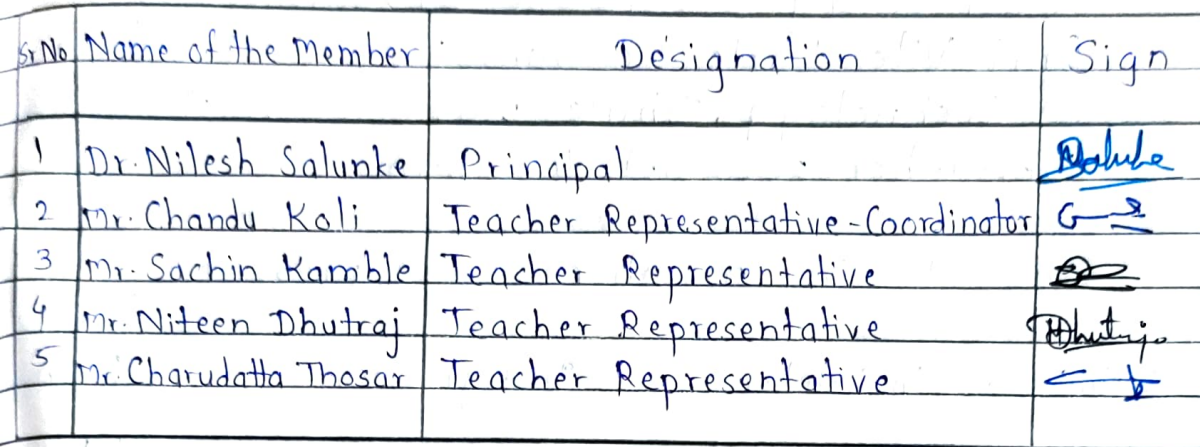 Sr No Name of the Member Designation Sign
1 Dr. Nilesh Salunke Principal
2 Mr. Chandu Koli Teacher Representative - Coordinator
3 Mr. Sachin Kamble Teacher Representative
4 Mr. Niteen Dhutraj Teacher Representative
5 Mr. Charudatta Thosar Teacher Representative